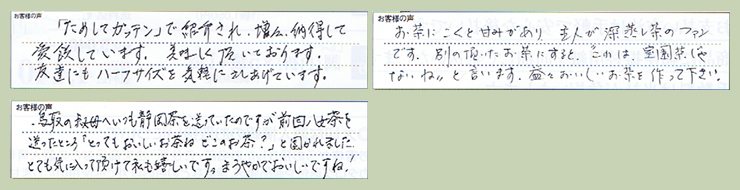 お客様の声
「ためしてガッテン」で紹介され、増々、納得して
愛飲しています。美味しく頂いております。
友達にもハーフサイズを気軽にさしあげています。
お客様の声
お茶にこくと甘みがあり、主人が深蒸し茶のファン
です。別の頂いたお茶にすると、"これは、宝園茶じゃ
ないね"と言います。益々おいしいお茶を作って下さい。
お客様の声
鳥取の叔母へいつも静岡茶を送っていたのですが前回八女茶を
送ったところ「とってもおいしいお茶ね どこのお茶？」と聞かれました
とても気に入って頂けて私も嬉しいです。まろやかでおいしいですね！